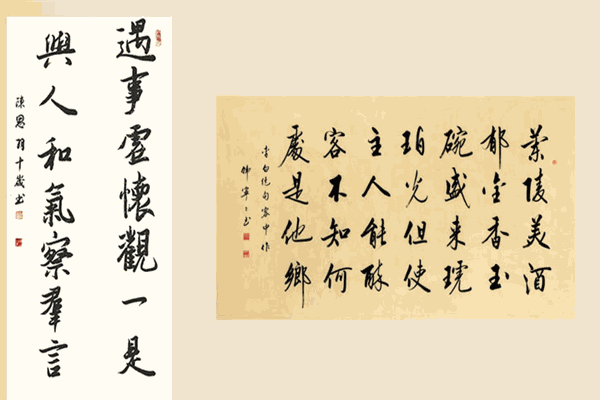 遇事虚懷觀一是
與人和氣察羣言
十歲书
蘭陵美酒
郁金香玉
碗盛来琥
珀光但使
主人能醉
客不知何
處是他鄉
李白绝句客中作